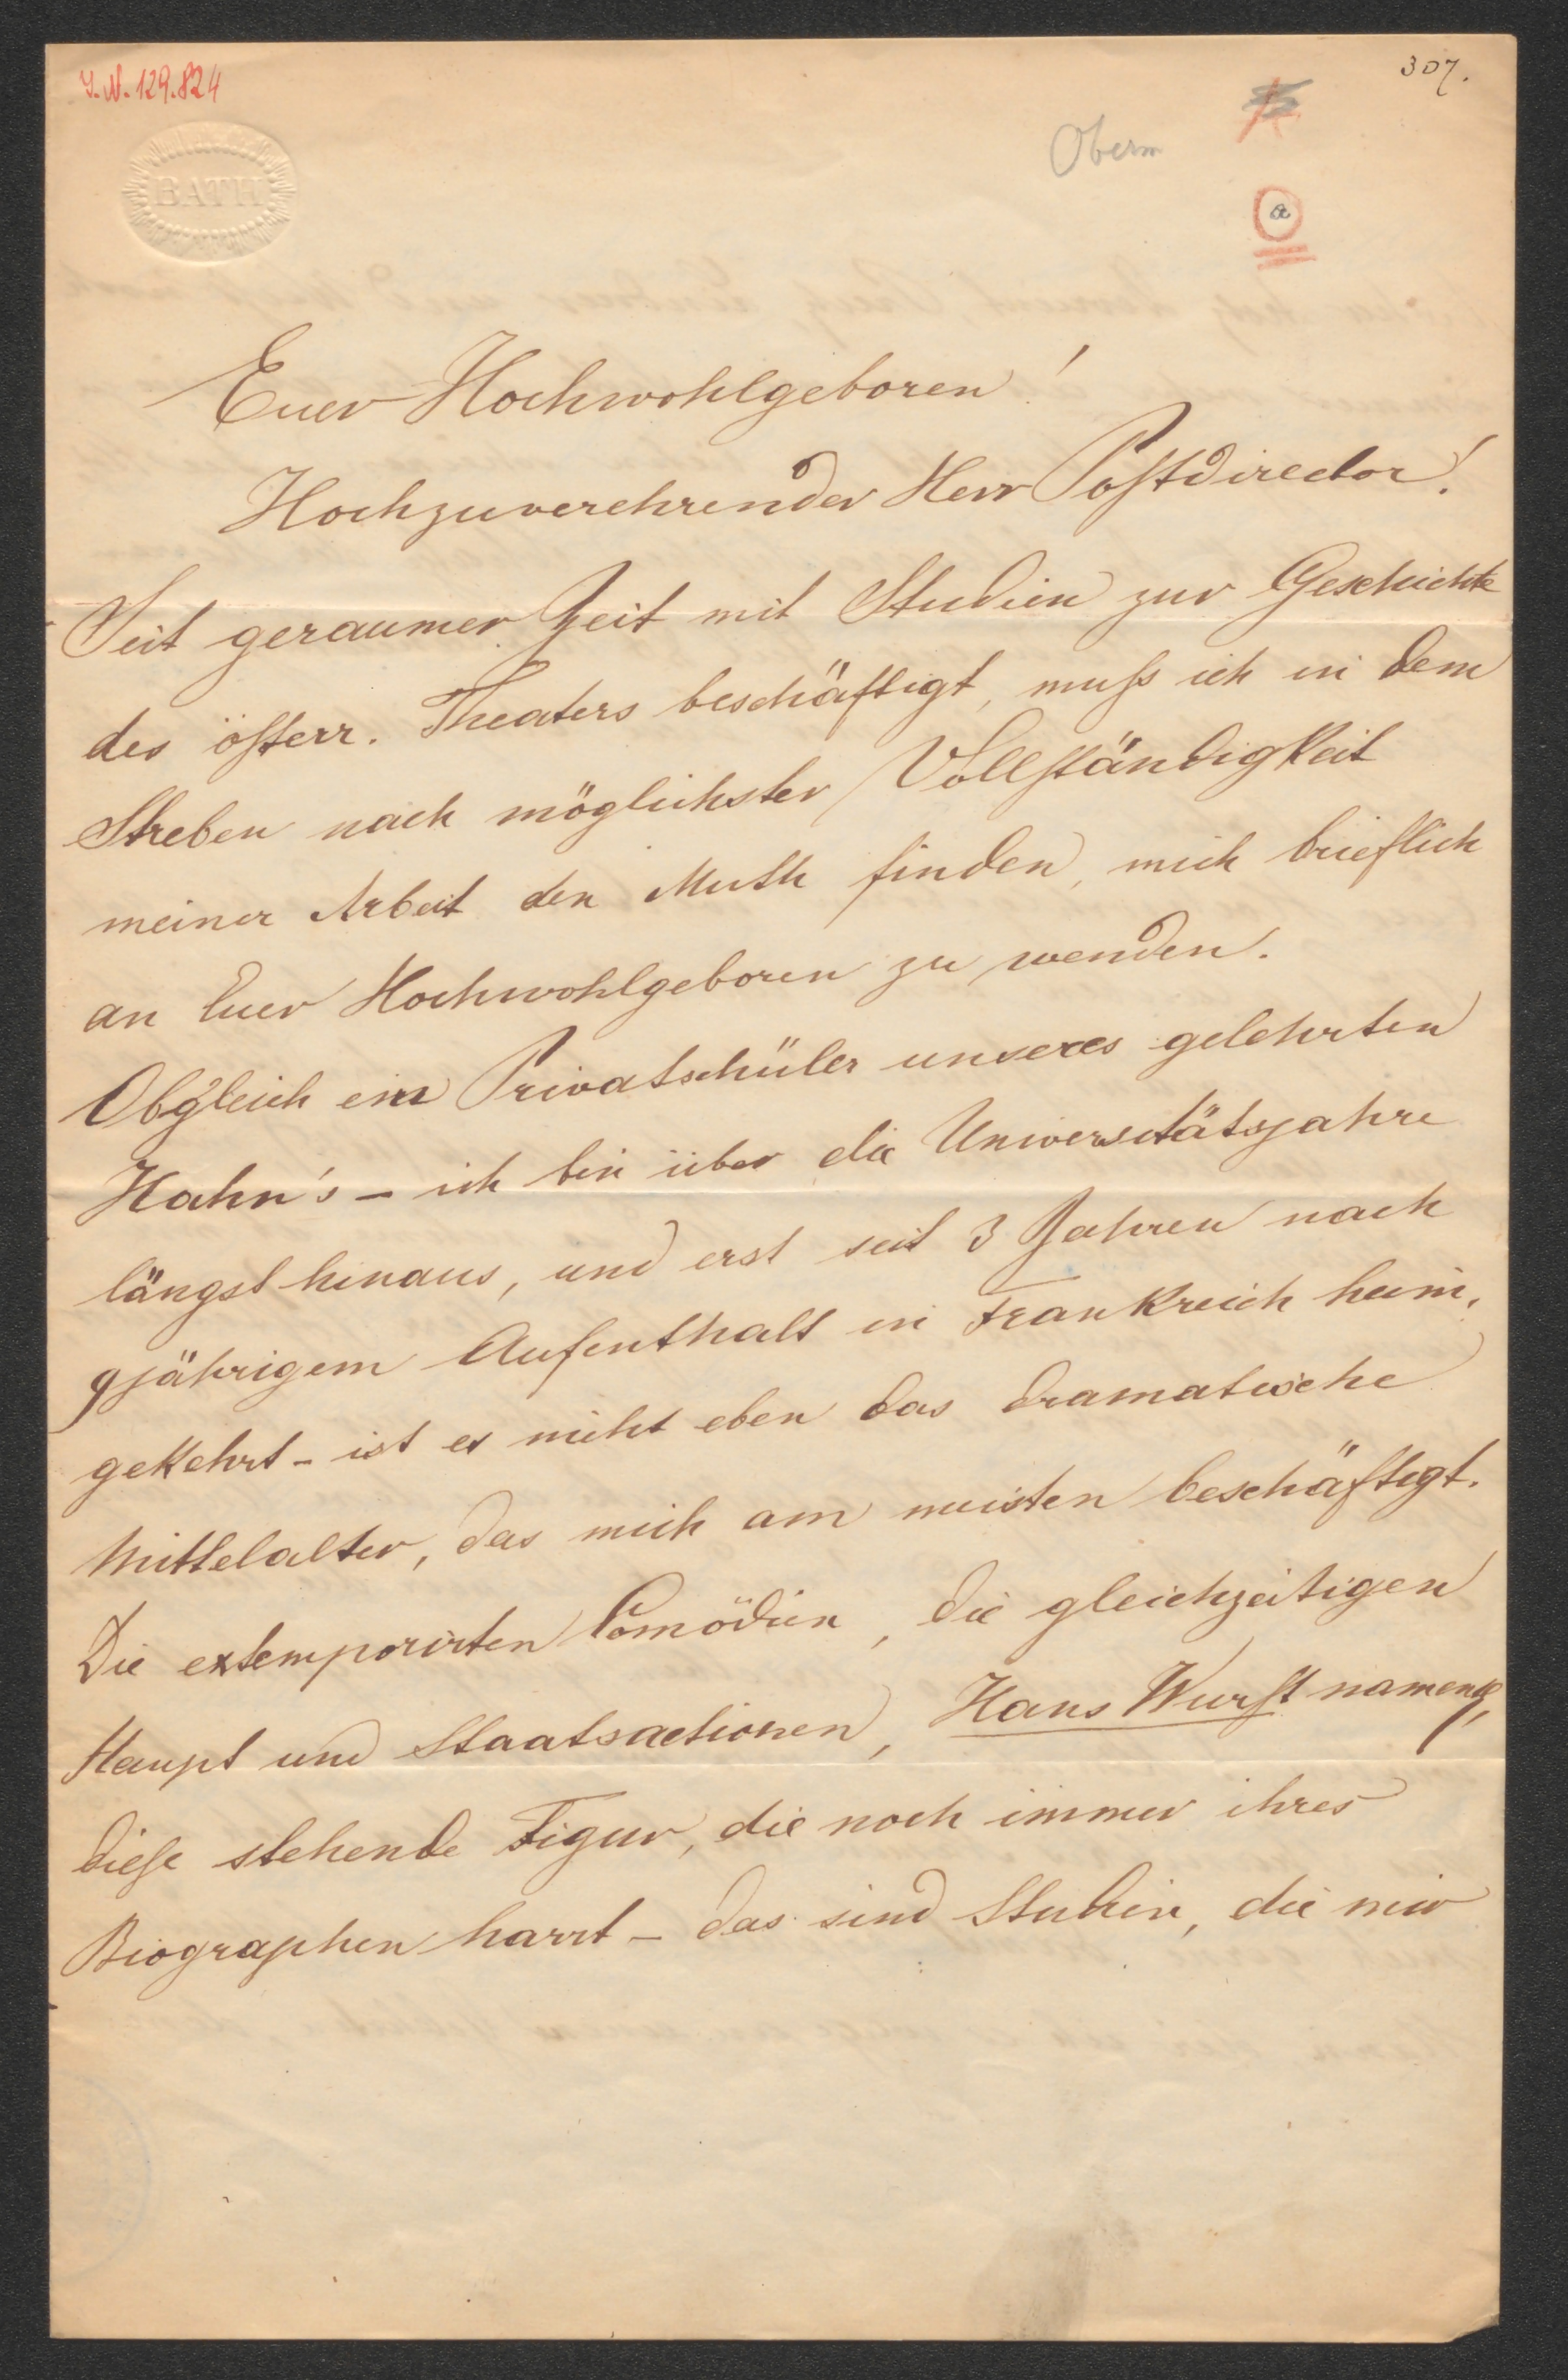 I.N. 129.824
307.
Oberm
a
BATH
Euer Hochwohlgeboren!
Hochzuverehrender Herr Postdirector!
Seit geraumer Zeit mit Studien zur Geschichte
des österr. Theaters beschäftigt, muß ich in dem
Streben nach möglichster Vollständigkeit
meiner Arbeit den Muth finden, mich brieflich
an Euer Hochwohlgeboren zu wenden.
Obgleich ein Privatschüler unseres gelehrten
Hahn's – ich bin über die Universitätsjahre
längst hinaus, und erst seit 3 Jahren nach
9jährigem Aufenthalt in Frankreich heim,
gekehrt – ist es nicht eben das dramatische
Mittelalter, das mich am meisten beschäftigt.
Die extemporirten Comödien, die gleichzeitigen
Haupt und Staatsactionen, Hans Wurst
diese stehende Figur, die noch immer ihres
Biographen harrt – das sind Studien, die mir